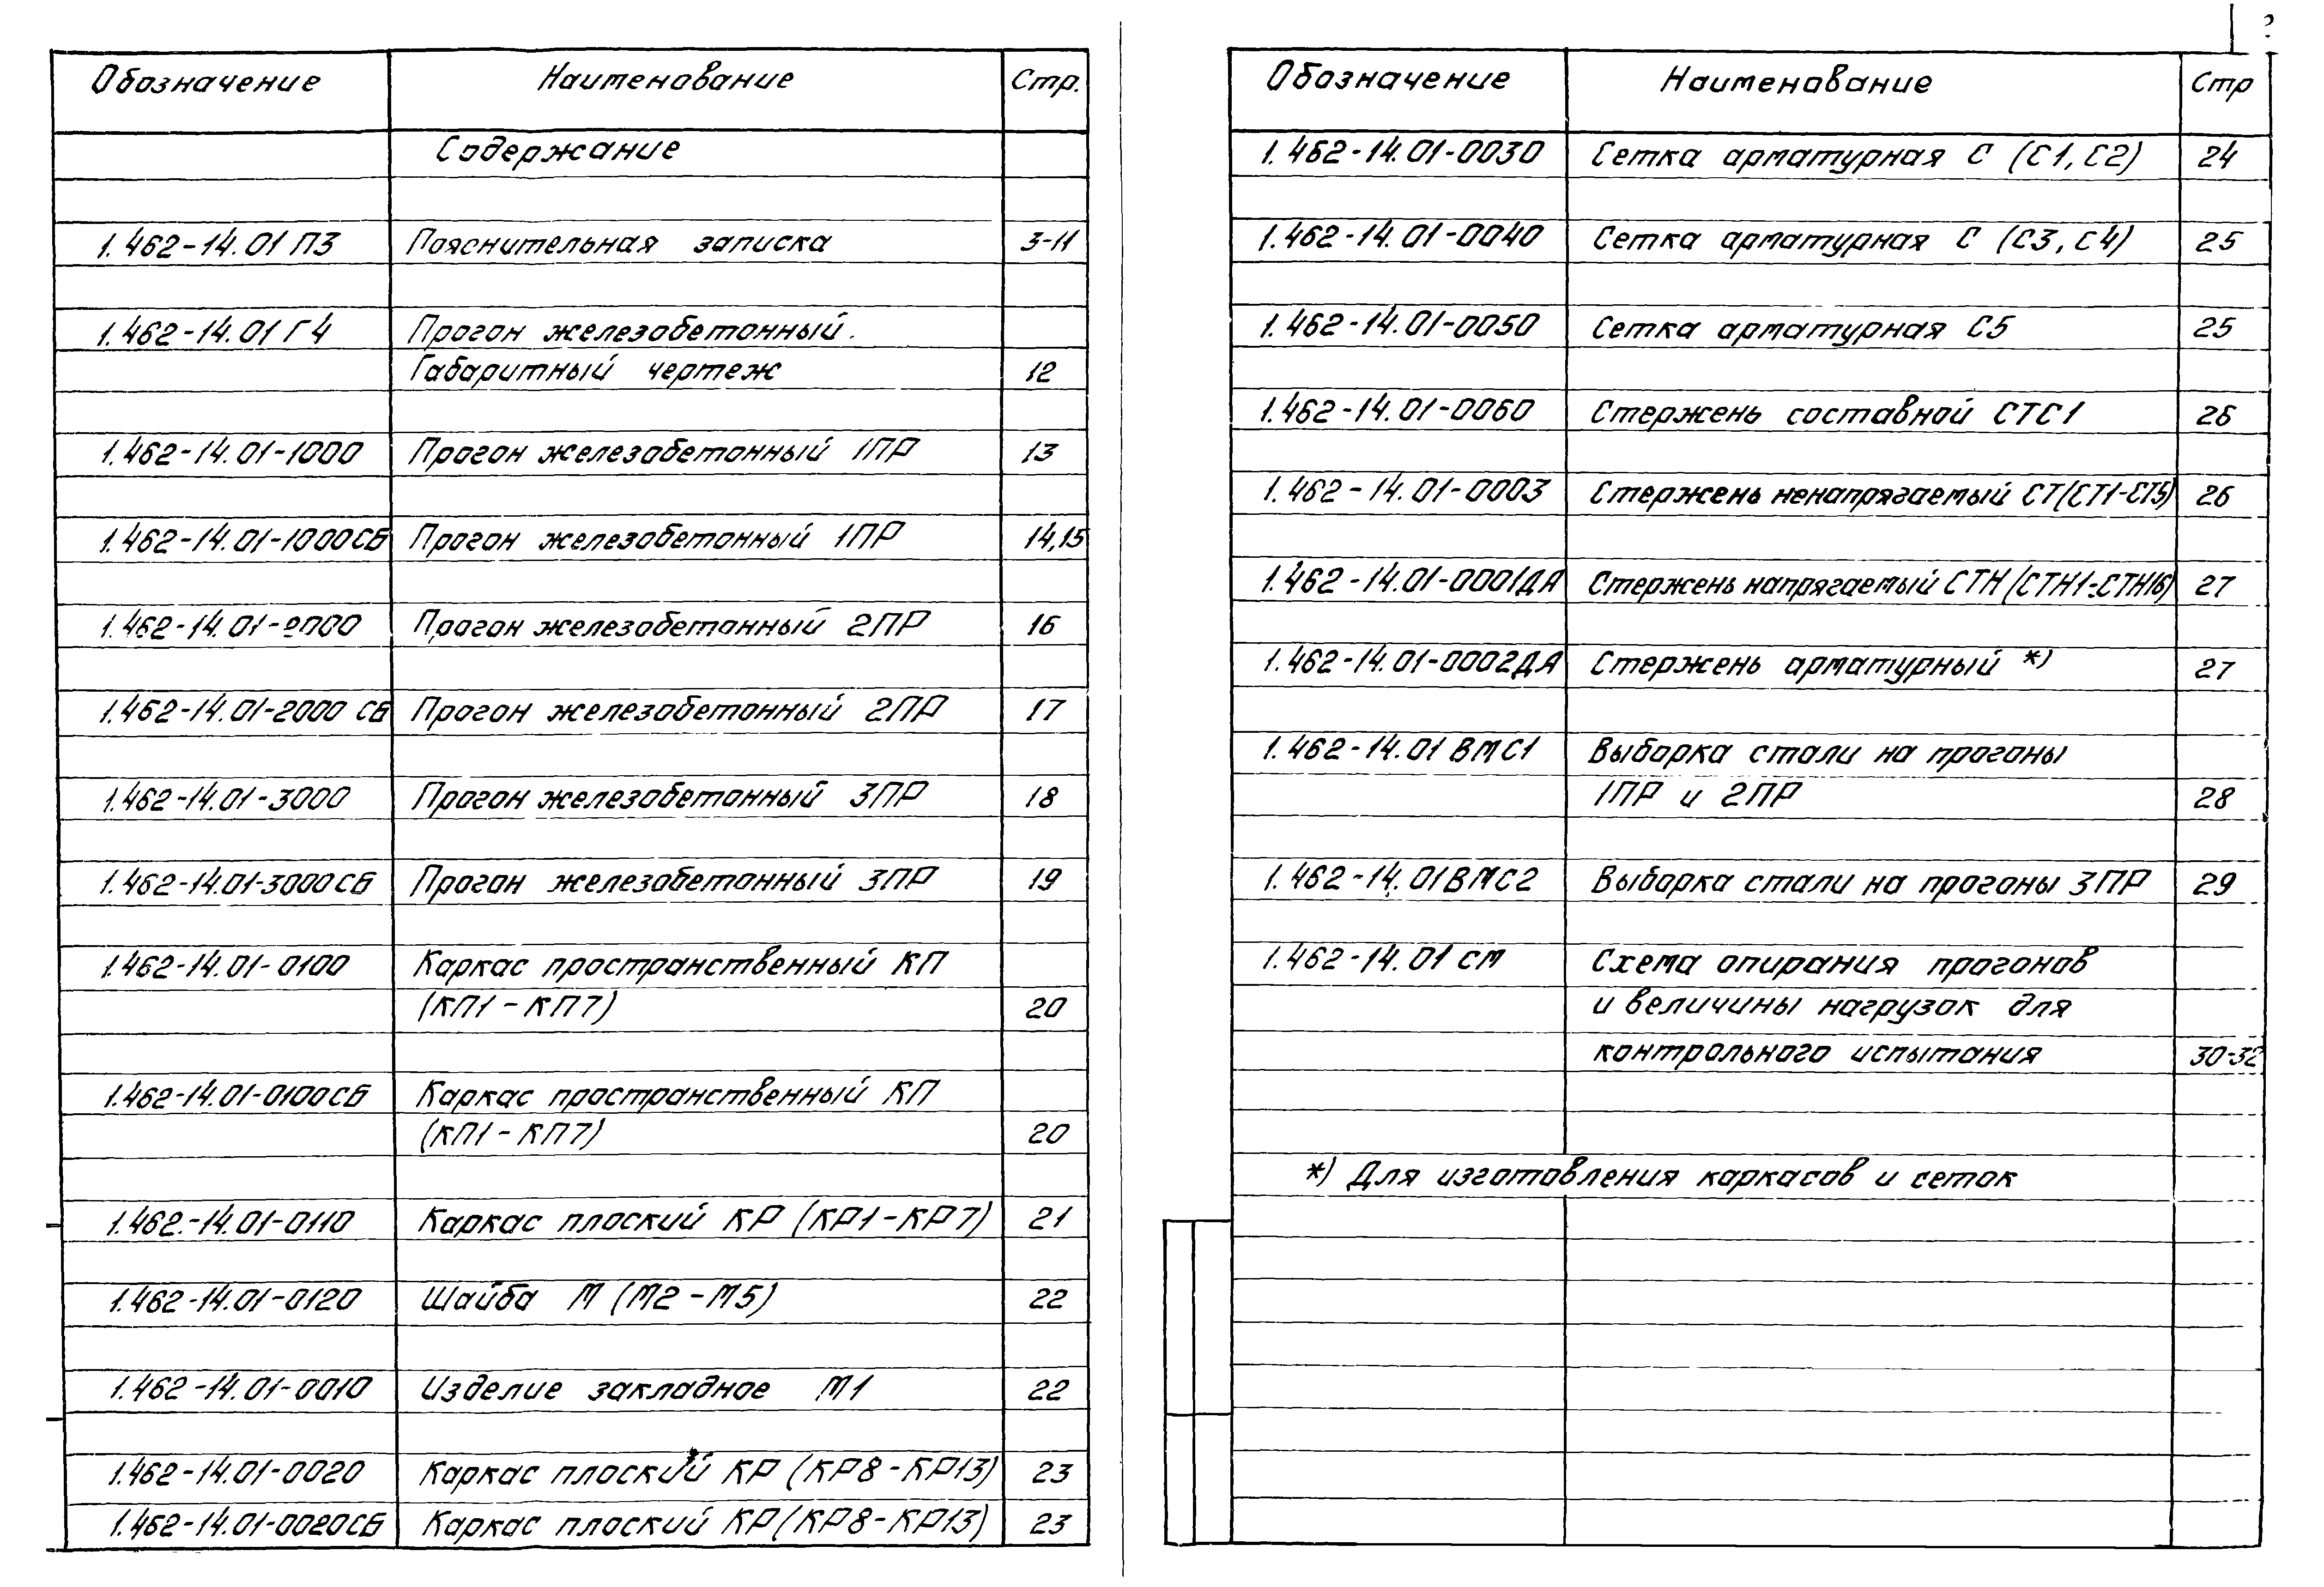 Обозначение Наименование Стр.
Содержание
1.462-14.01 ПЗ Пояснительная записка 3-11
1.462-14.01 ГЧ Прогон железобетонный.
Габаритный чертеж 12
1.462-14.01-1000 Прогон железобетонный 1ПР 13
1.462-14.01-1000СБ Прогон железобетонный 1ПР 14,15
1.462-14.01-2000 Прогон железобетонный 2ПР 16
1.462-14.01-2000 СБ Прогон железобетонный 2ПР 17
1.462-14.01-3000 Прогон железобетонный 3ПР 18
1.462-14.01-3000СБ Прогон железобетонный 3ПР 19
1.462-14.01-0100 Каркас пространственный КП
(КП1-КП7) 20
1.462-14.01-0100СБ Каркас пространственный КП
(КП1-КП7) 20
1.462-14.01-0110 Каркас плоский КР (КР1-КР7) 21
1.462-14.01-0120 Шайба М (М2-М5) 22
1.462-14.01-0010 Изделие закладное М1 22
1.462-14.01-0020 Каркас плоский КР (КР8-КР13) 23
1.462-14.01-0020СБ Каркас плоский КР (КР8-КР13) 23
Обозначение Наименование Стр
1.462-14.01-0030 Сетка арматурная С (С1, С2) 24
1.462-14.01-0040 Сетка арматурная С (С3, С4) 25
1.462-14.01-0050 Сетка арматурная С5 25
1.462-14.01-0060 Стержень составной СТС1 26
1.462-14.01-0003 Стержень ненапрягаемый СТ(СТ1-СТ5) 26
1.462-14.01-0001ДА Стержень напрягаемый СТН (СТН1-СТН16) 27
1.462-14.01-0002ДА Стержень арматурный *) 27
1.462-14.01 ВМС1 Выборка стали на прогоны
1ПР и 2ПР 28
1.462-14.01ВМС2 Выборка стали на прогоны 3ПР 29
1.462-14.01 СМ Схема опирания прогонов
и величины нагрузок для
контрольного испытания 30-32
*) Для изготовления каркасов и сеток